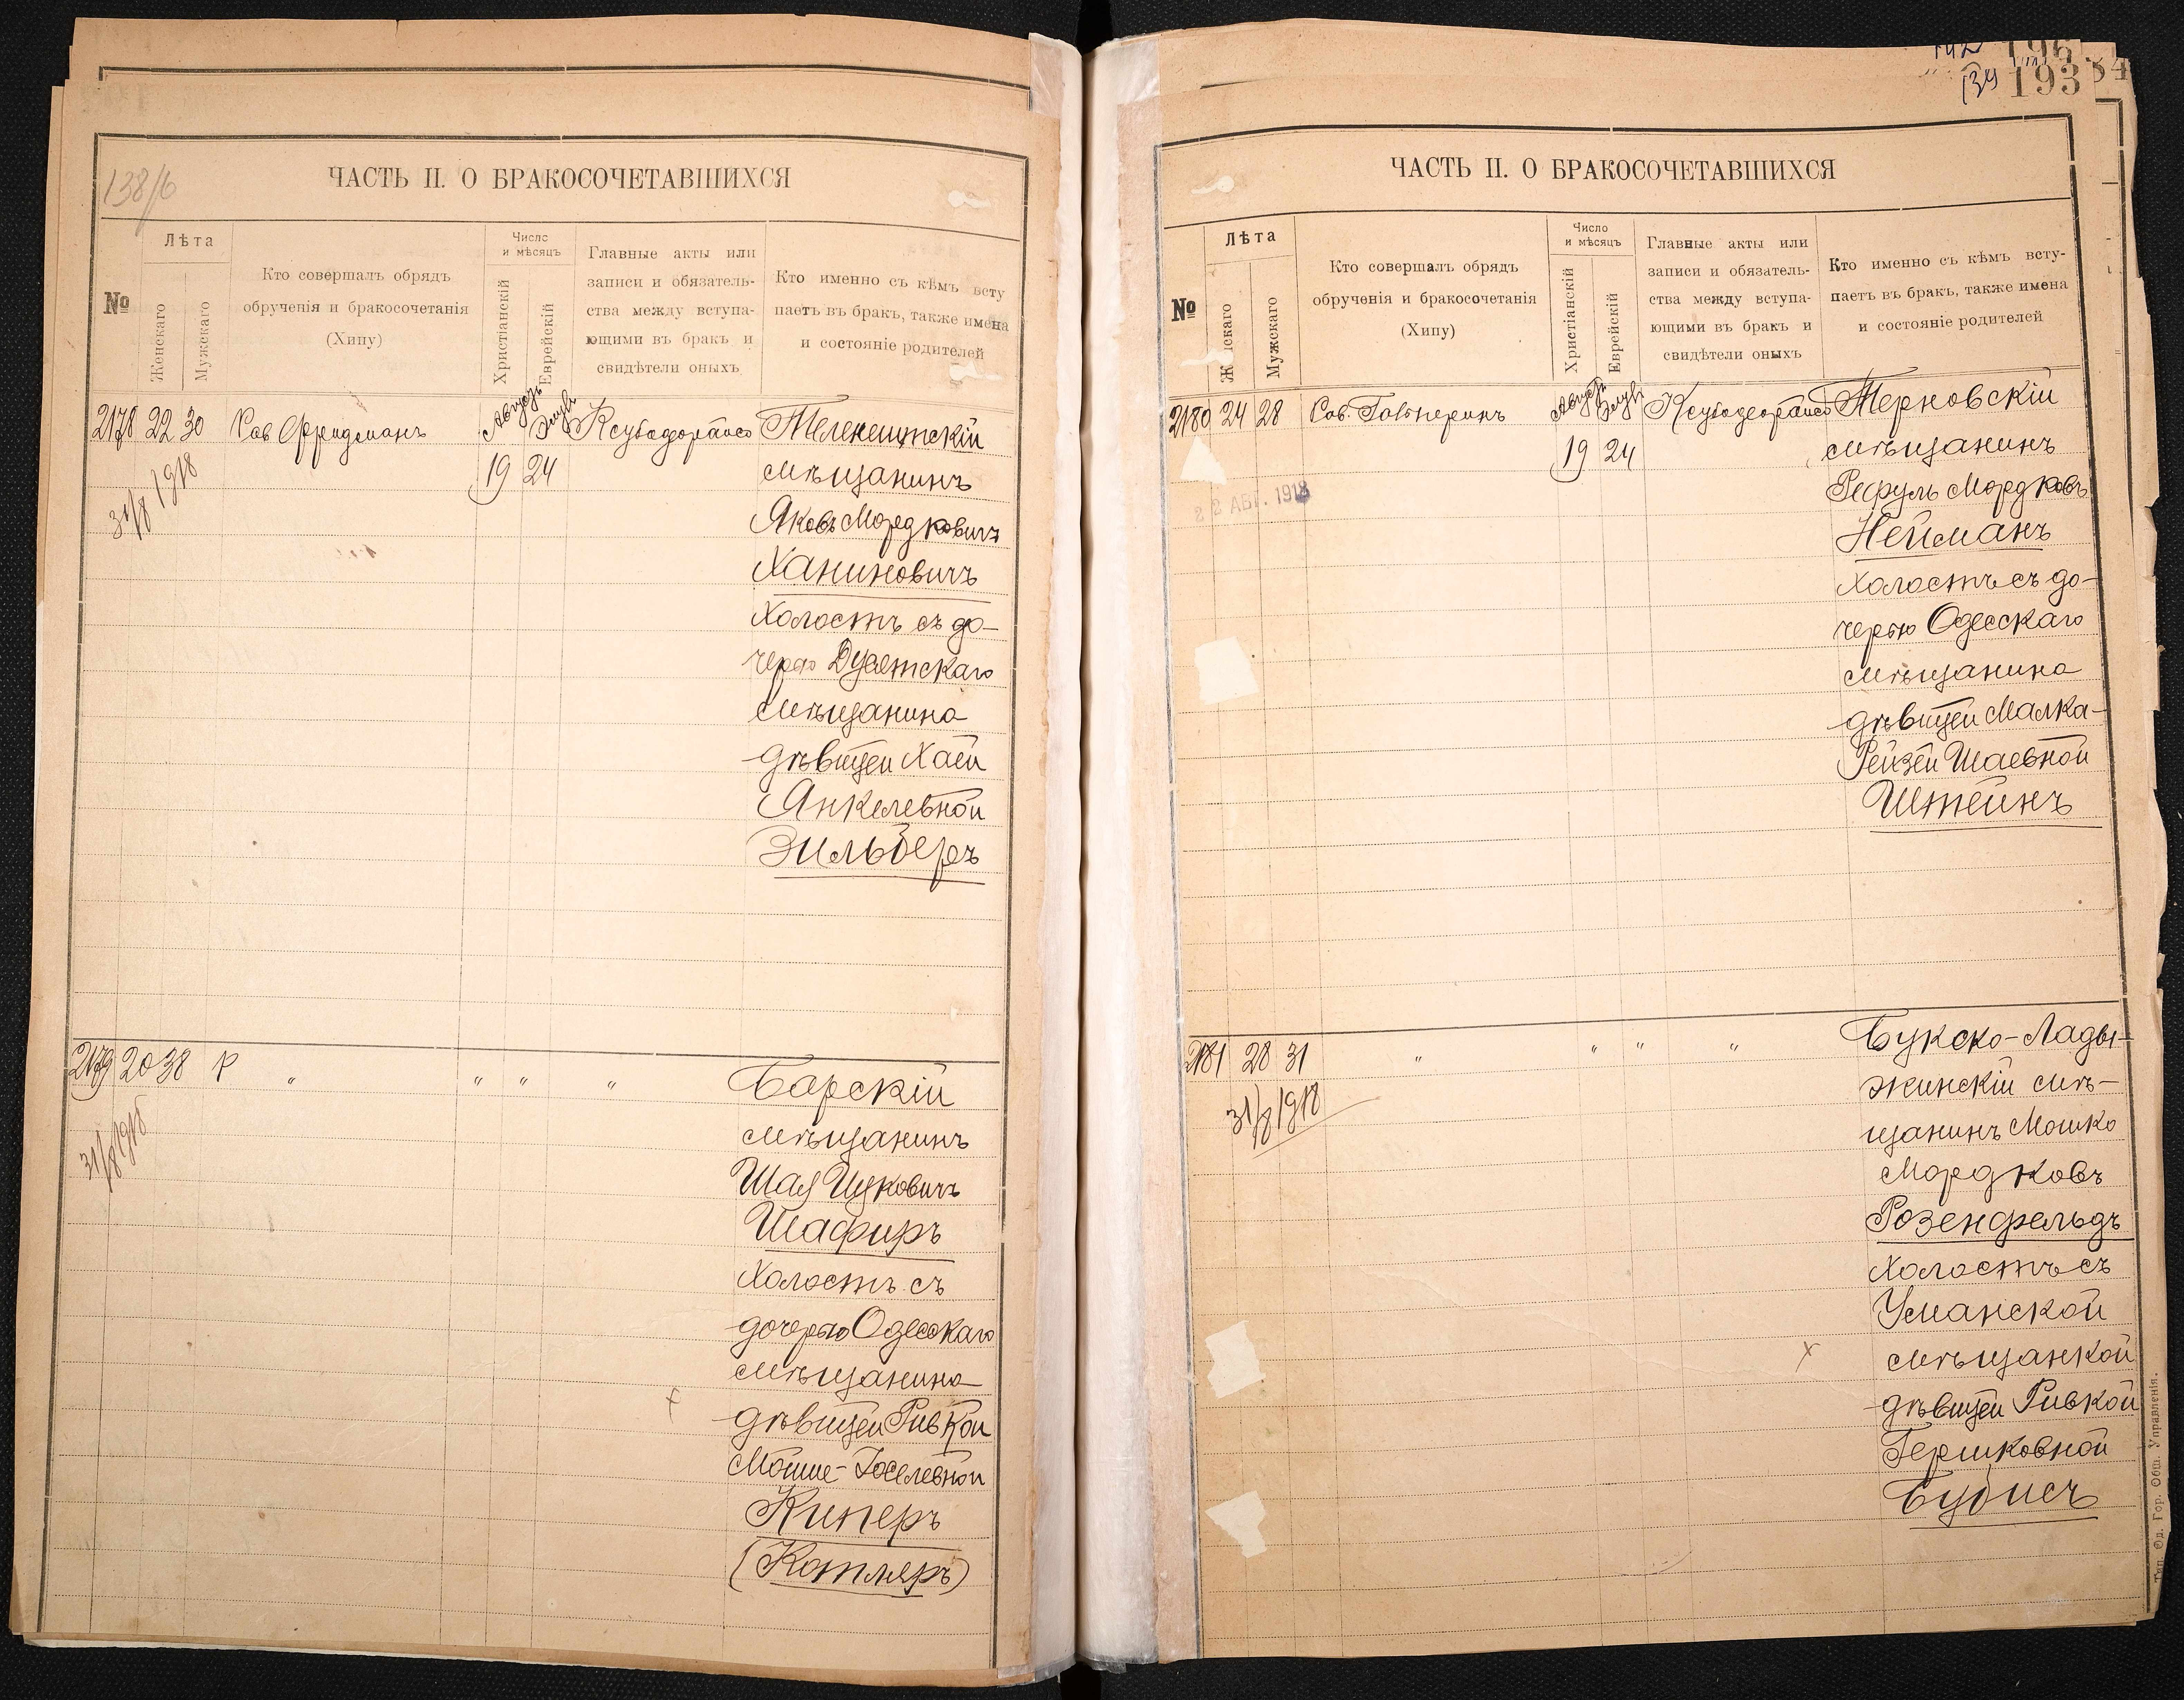 138/б
ЧАСТЬ II. О БРАКОСОЧЕТАВШИХСЯ
№
Лѣта
Женскаго
Мужскаго
Кто совершалъ обрядъ
обрученія и бракосочетанія
(Хипу)
Число
и мѣсяцъ
Христіанскій
Еврейскій
Главные акты или
записи и обязатель-
ства между вступа-
ющими въ бракъ и
свидѣтели оныхъ
Кто именно съ кѣмъ всту
паетъ въ бракъ, также имена
и состояніе родителей
2178 22 30 Рав Фридманъ Августъ Элулъ
19 24
31/8 1918
Теленештскій
мѣщанинъ
Яковъ Мордковичъ
Ханиновичъ
холостъ съ до-
черью Дусятскаго
мѣщанина
дѣвицей Хаей
Янкелевной
Зильберъ
2179 20 38 Р " " " "
31/8 1918
Барскій
мѣщанинъ
Шая Ицковичъ
Шафиръ
холостъ съ
дочерью Одесскаго
мѣщанина
дѣвицей Ривкой
Мошье-Іоселевной
Киперъ
(Котляръ)
134 193
ЧАСТЬ II. О БРАКОСОЧЕТАВШИХСЯ
№
Лѣта
Женскаго
Мужскаго
Кто совершалъ обрядъ
обрученія и бракосочетанія
(Хипу)
Число
и мѣсяцъ
Христіанскій
Еврейскій
Главные акты или
записи и обязатель-
ства между вступа-
ющими въ бракъ и
свидѣтели оныхъ
Кто именно съ кѣмъ всту-
паетъ въ бракъ, также имена
и состояніе родителей
2180 24 28 Рав. Августъ Элулъ
19 24
22 АВГ. 1918
Терновскій
мѣщанинъ
Рефуль Мордковъ
Нейманъ
холостъ съ до-
черью Одесскаго
мѣщанина
дѣвицей Малка-
Рейзей Шаевной
Штейнъ
2181 28 31 " " " "
31/8 1918
Букско-Лады-
жинскій мѣ-
щанинъ Мошко
Мордковъ
Розенфельдъ
холостъ съ
Уманской
мѣщанкой
дѣвицей Ривкой
Гершковной
Бубисъ
Тип. Од. Гор. Общ. Управленія.